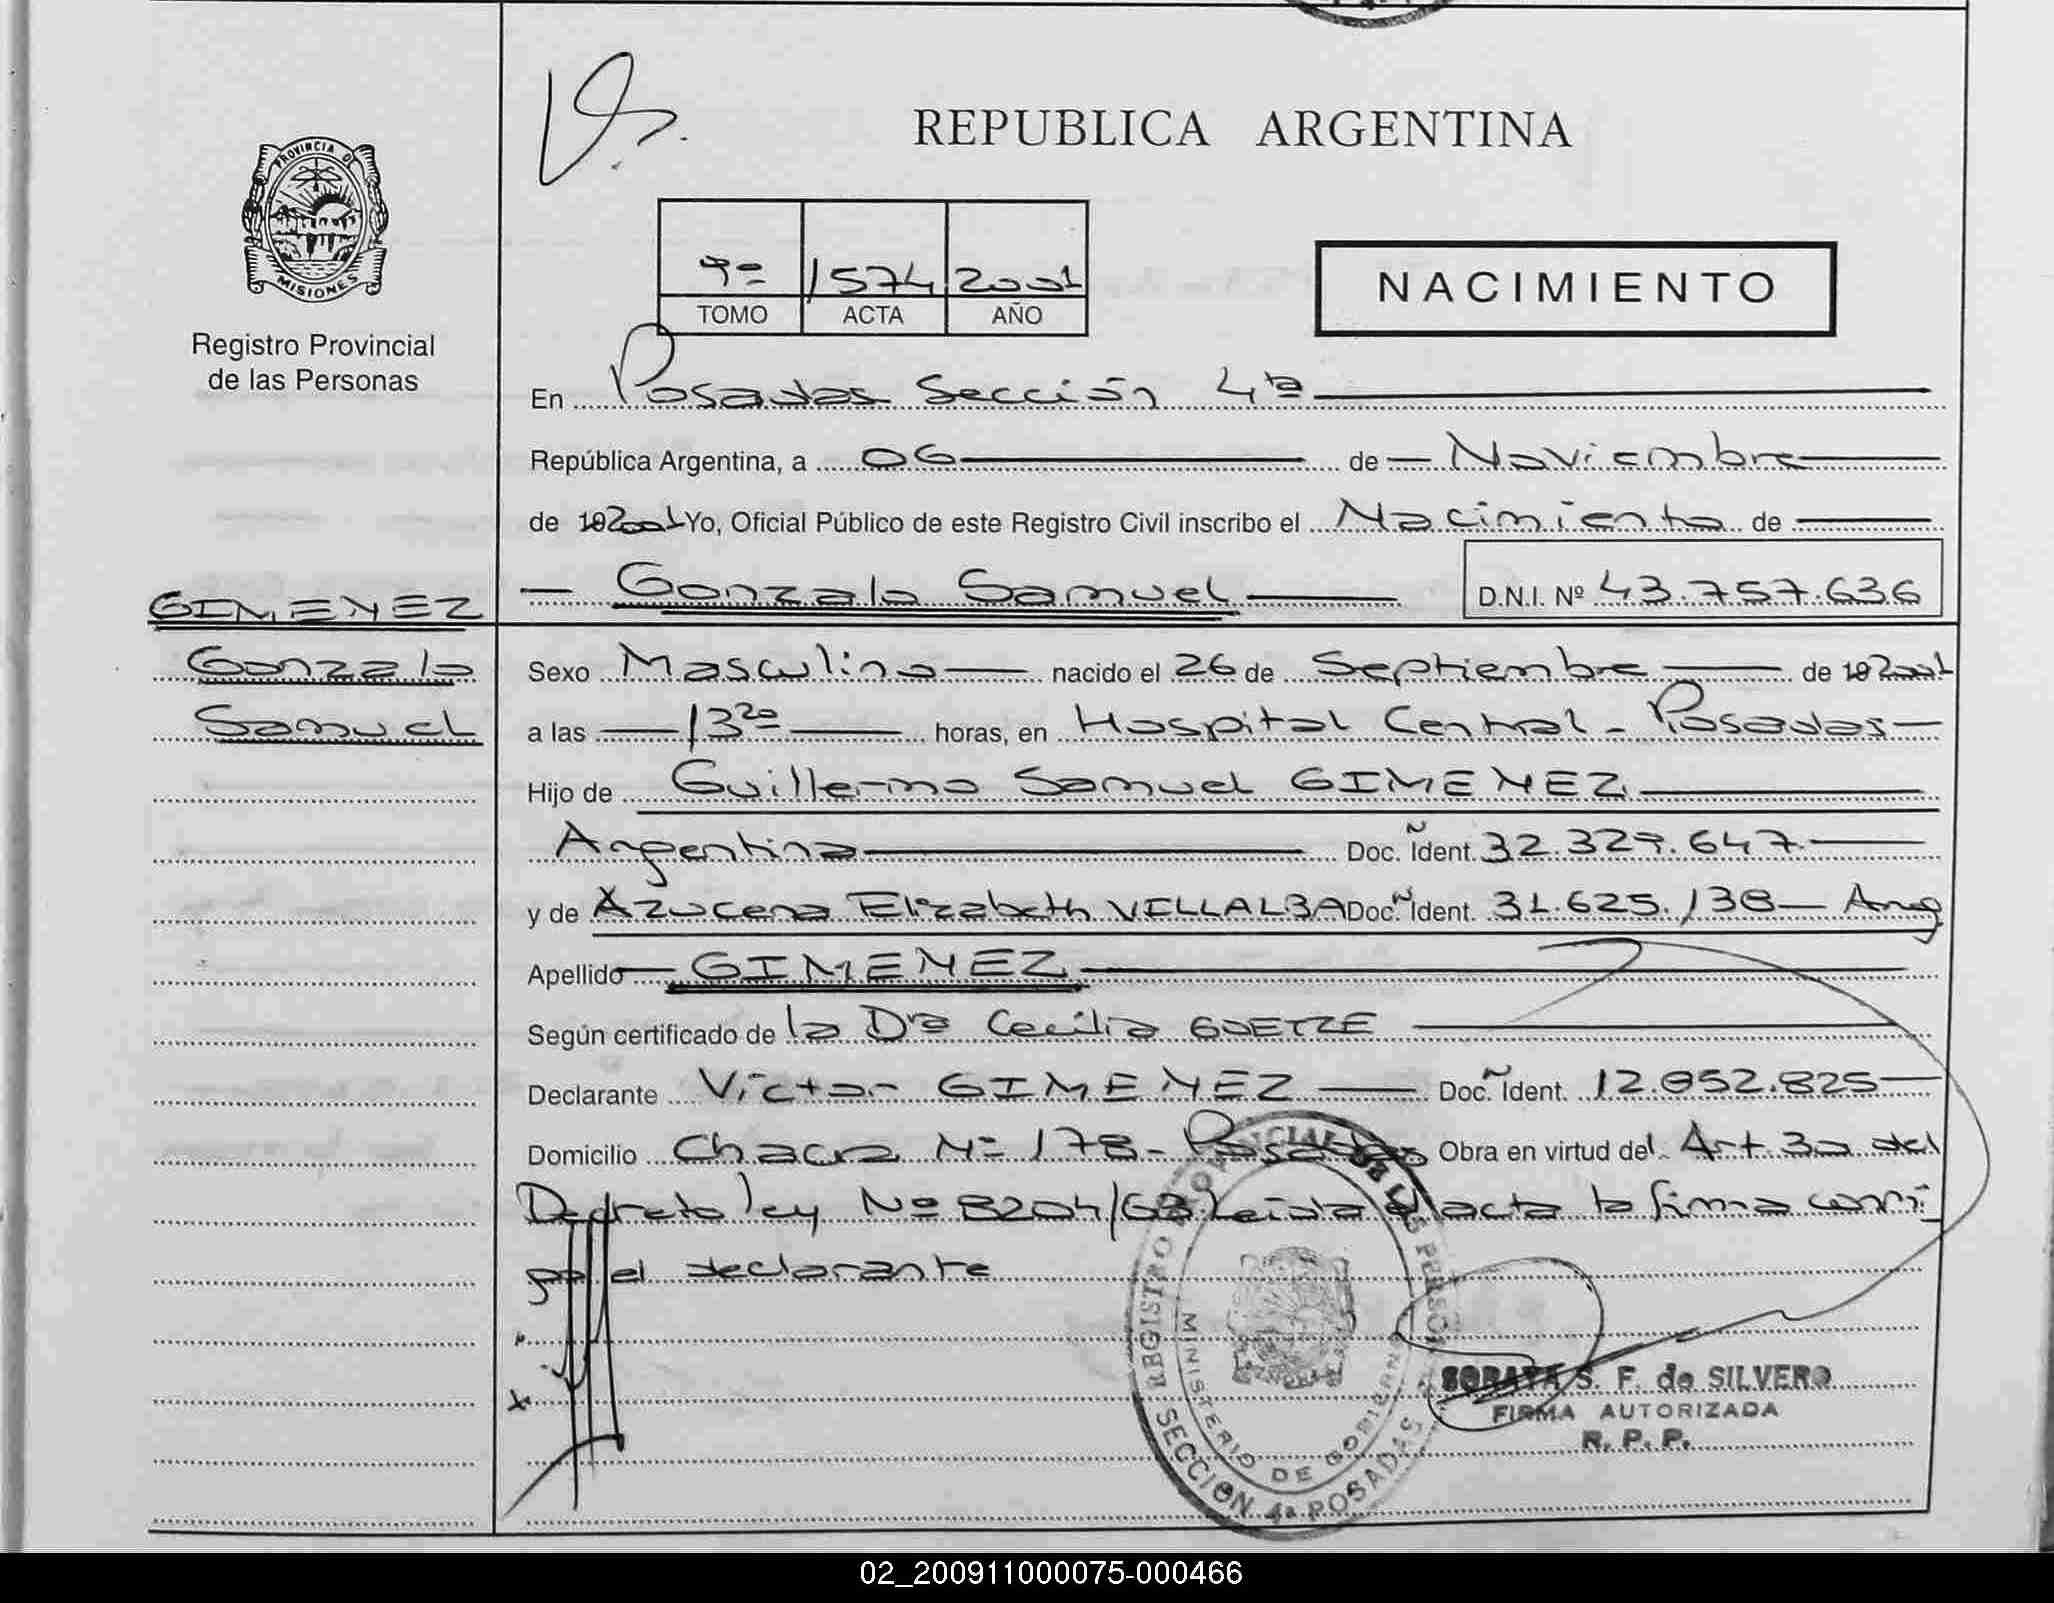 REPUBLICA ARGENTINA
PROVINCIA D
MISIONES
Registro Provincial
de las Personas
1574 2001
TOMO ACTA AÑO
NACIMIENTO
En Posadas Sección 4ta
República Argentina, a 06 de Noviembre
de 192001 Yo, Oficial Público de este Registro Civil inscribo el Nacimiento de
Gonzalo Samuel D.N.I. Nº 43.757.636
GIMENEZ
Gonzalo
Samuel
Sexo Masculino nacido el 26 de Septiembre de 192001
a las 13 20 horas, en Hospital Central - Posadas
Hijo de Guillermo Samuel GIMENEZ
Argentina Doc. Ident. 32.329.647
y de Azucena Elizabeth VILLALBA Doc. Ident. 31.625.138 Arg
Apellido GIMENEZ
Según certificado de la Dra Cecilia GOETZE
Declarante Victor GIMENEZ Doc. Ident. 12.852.825
Domicilio Chacra Nº 178 - Posadas Obra en virtud del Art 30 del
Decreto ley Nº 8204/63 Leida el acta la firma conmi
por el declarante
REGISTRO PROVINCIAL DE LAS PERSONAS
MINISTERIO DE GOBIERNO
SECCION 4ª POSADAS
SORAYA S. F. de SILVERO
FIRMA AUTORIZADA
R. P. P.
02_200911000075-000466